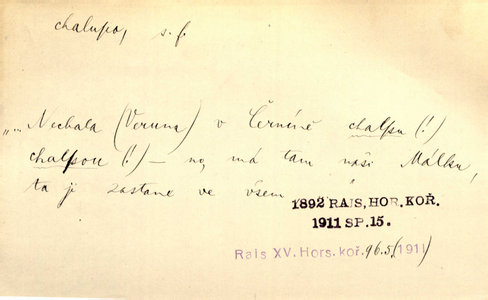 chalupa, s. f.
„... Nechala (Veruna) v Černíně chalpu (!)
chalpou (!) — no, má tam naši Málku,
ta jí zastane ve všem"
1892 RAIS, HOR. KOŘ.
1911 SP. 15.
Rais XV. Hors. koř. 96.5 (1911)